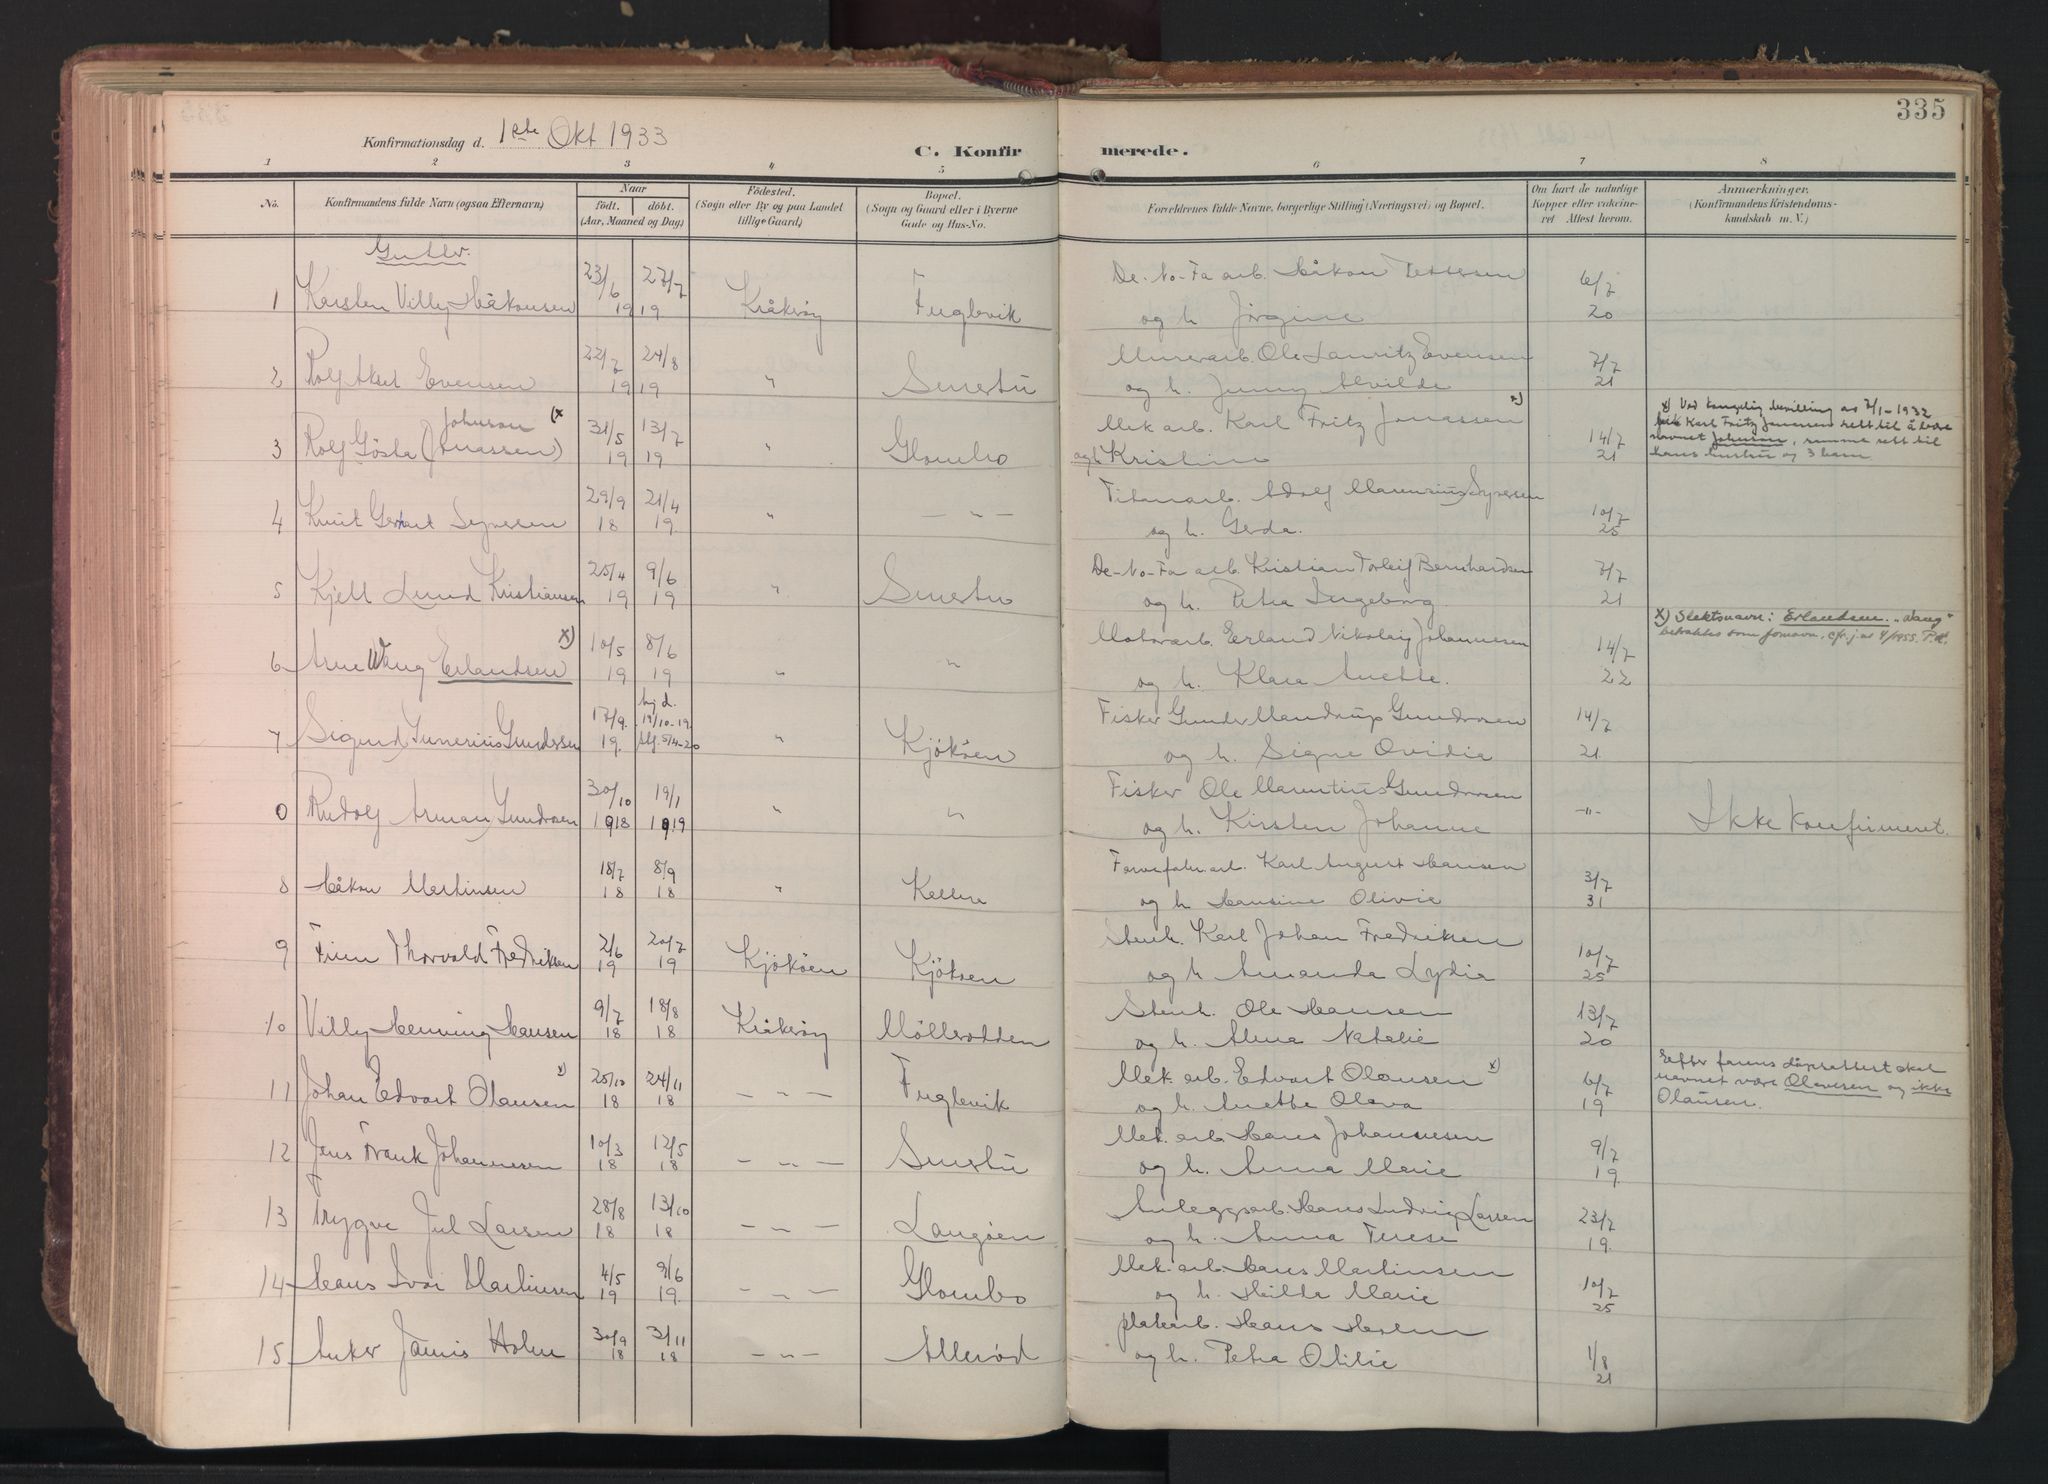 335
Konfirmationsdag d. 1ste Okt 1933
C. Konfirmerede.
1 2 3 4 5 6 7 8
No.
Konfirmandens fulde Navn (ogsaa Efternavn)
Naar
født. døbt.
(Aar, Maaned og Dag)
Fødested.
(Sogn eller By og paa Landet
tillige Gaard)
Bopæl.
(Sogn og Gaard eller i Byerne
Gade og Hus-No.
Forældrenes fulde Navne, borgerlige Stilling (Næringsvei) og Bopæl.
Om havt de naturlige
Kopper eller vakcine-
ret Attest herom.
Anmærkninger.
(Konfirmandens Kristendoms-
kundskab m. V.)
Gutter.
1 Karsten Villy Håkonsen 23/6 19 27/7 19 Kråkerøy Fuglevik De-No-Fa arb. Håkon Pettersen 6/7 20
og h. Jörgine
2 Rolf Aksel Evensen 22/7 19 24/8 19 " Smertu Murerarb. Ole Lauritz Evensen 7/7 21
og h. Jenny Alvilde
3 Rolf Gösta (Jonassen) Johnson (x 31/5 19 13/7 19 " Glombo Mek arb. Karl Fritz Jonassen x) 14/7 21
og h. Kristine
x) Ved kongelig bevilling av 7/1-1932
fikk Karl Fritz Jonassen rett til å bære
navnet Johnson, samme rett til
hans hustru og 3 barn.
4 Knut Gerhart Syversen 29/9 18 21/4 19 " — " — Titanarb. Adolf Marensius Syversen 10/7 25
og h. Gerda.
5 Kjell Lund Kristiansen 25/4 19 9/6 19 " Smertu De-No-Fa arb. Kristian Torleif Bernhardsen 7/7 21
og h. Petra Ingeborg.
6 Arne Wang Erlandsen x) 10/5 19 8/6 19 " " Motorarb. Erland Nikolaig Johannesen 14/7 22
og h. Klara Anette.
x) Slektsnavn: Erlandsen. "Wang"
betraktes som fornavn, cfr. j.nr 4/1955.
7 Sigurd Junerius Gundersen 17/9 19. hj.d. 19/10-19 5/4-20 " Kjøkøen Fisker Gunder Mandrup Gundersen 14/7 21
og h. Signe Ovidia
0 Rudolf Arman Gundersen 30/10 1918 19/1 1919 " " Fisker Ole Marentius Gundersen —"— Ikke konfirmeret.
og h. Kirsten Johanne
8 Håkon Martinsen 18/7 18 8/9 18 " Kallera Karl August Hansen 3/7 31
og h Hansine Olivie
9 Finn Thorvald Fredriksen 2/6 19 20/7 19 Kjøkøen Kjøkøen Stenh. Karl Johan Fredriksen 10/7 25
og h Amanda Lydia
10 Villy Henning Hansen 9/7 18 18/8 18 Kråkerøy Möllerodden Stenh. Ole Hansen 13/7 20
og h. Alma Natalie
11 Johan Edvart Olausen x) 25/10 18 24/11 18 — " — Fuglevik Mek. arb. Edvart Olausen x) 6/7 19
og h. Anette Olava
Efter farens dåpsattest skal
navnet være Olavesen og ikke
Olausen.
12 Jens Frank Johannesen 10/3 18 12/5 18 — " — Smertu Mek. arb. Hans Johannesen 9/7 19
og h. Anna Marie
13 Trygve Jul Larsen 28/8 18 13/10 18 — " — Langøen Anleggsarb. Hans Ludvig Larsen 23/7 19.
og h. Anna Terese
14 Hans Ivar Martinsen 4/5 19 9/6 19. — " — Glombo Mek. arb. Hans Martinsen 10/7 25
og h. Hilda Marie
15 Anker Jannis Holm 30/9 18 3/11 18 — " — Allerød platearb. Hans Holm 1/8 21
og h. Petra Otilie